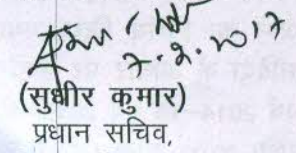 7.2.2017
(सुधीर कुमार)
प्रधान सचिव,